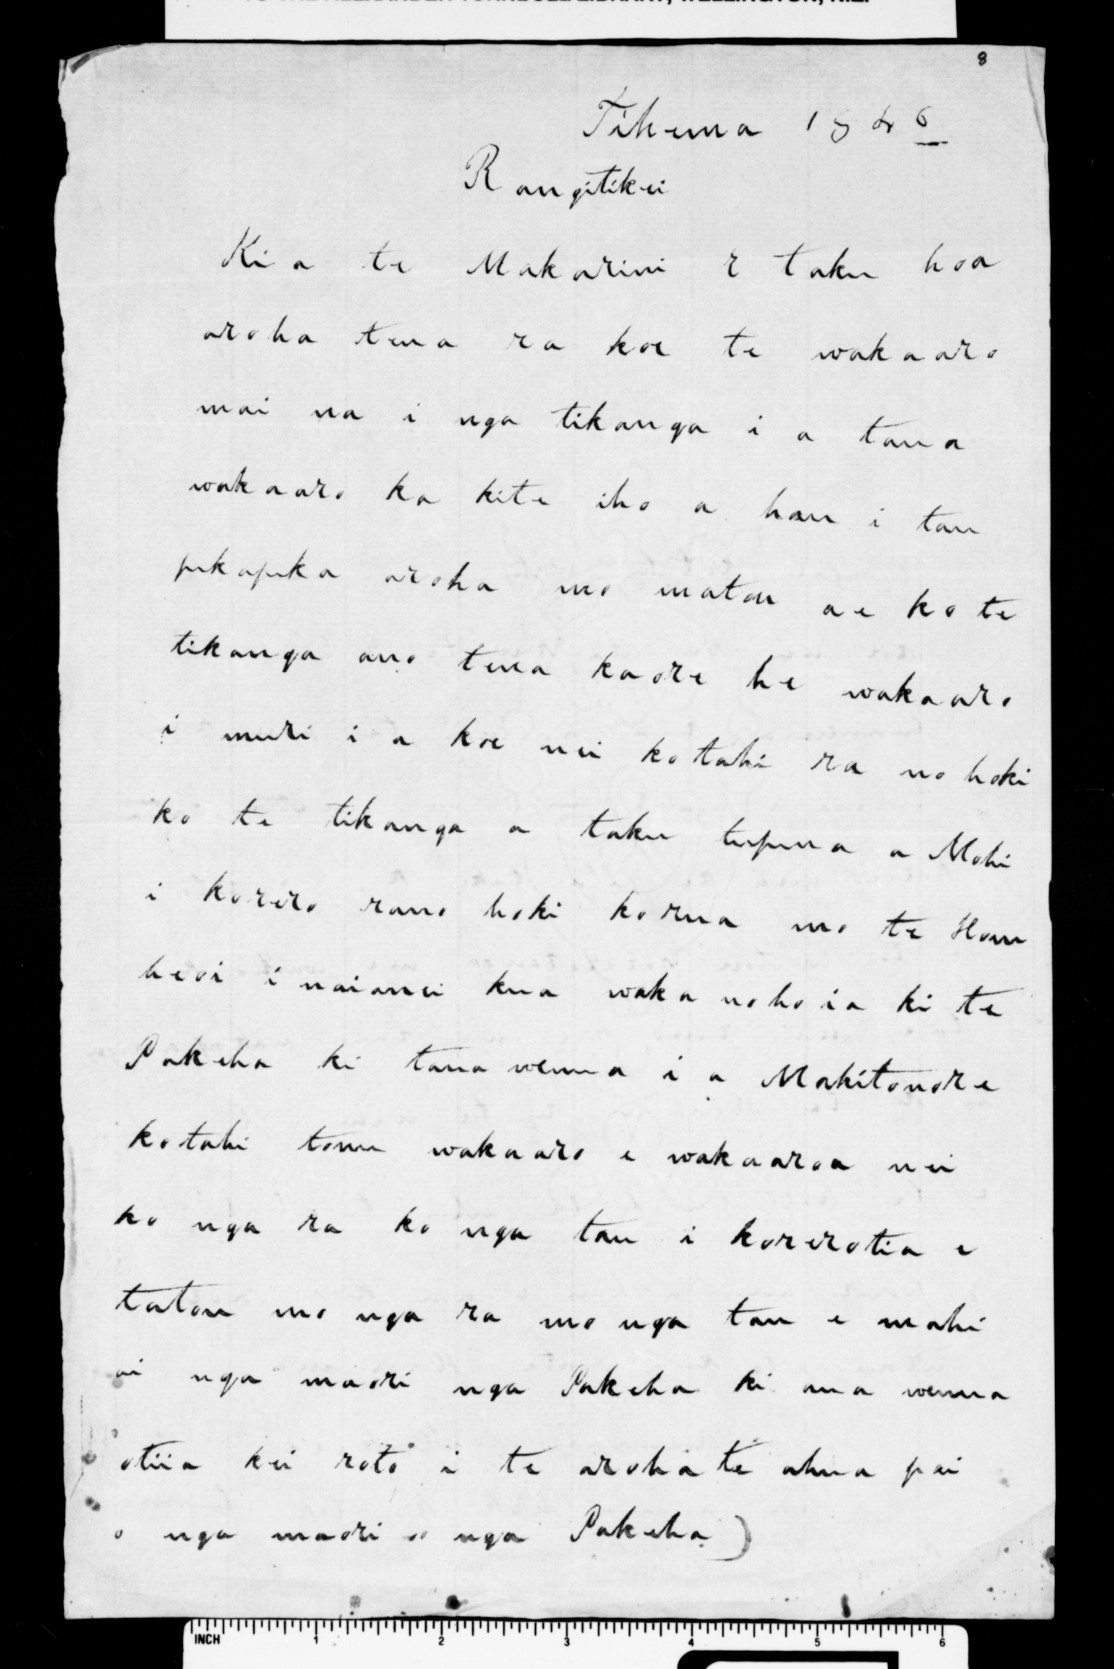 8
Tihema 1846
Rangitikei
Ki a te Makarini e taku hoa
aroha tena ra koe te wakaaro
mai na i nga tikanga i a tana
wakaaro ka kite iho a hau i tau
pukapuka aroha mo matou ae ko te
tikanga ano tena kaore he wakaaro
i muri i a koe nei kotahi ra no hoki
ko te tikanga a taku tupuna a Mohi
i korero rano hoki korua mo te Hou
heoi i naianei kua waka nohoia ki te
Pakeha ki tana wenua i a Makitonore
kotahi tonu wakaaro e wakaaroa nei
ko nga ra ko nga tau i korerotia e
tatou mo nga ra mo nga tau e mahi
ai nga maori nga Pakeha ki ana wenua
otiia kei roto i te aroha te ahua pai
o nga maori o nga Pakeha)
INCH 1 2 3 4 5 6